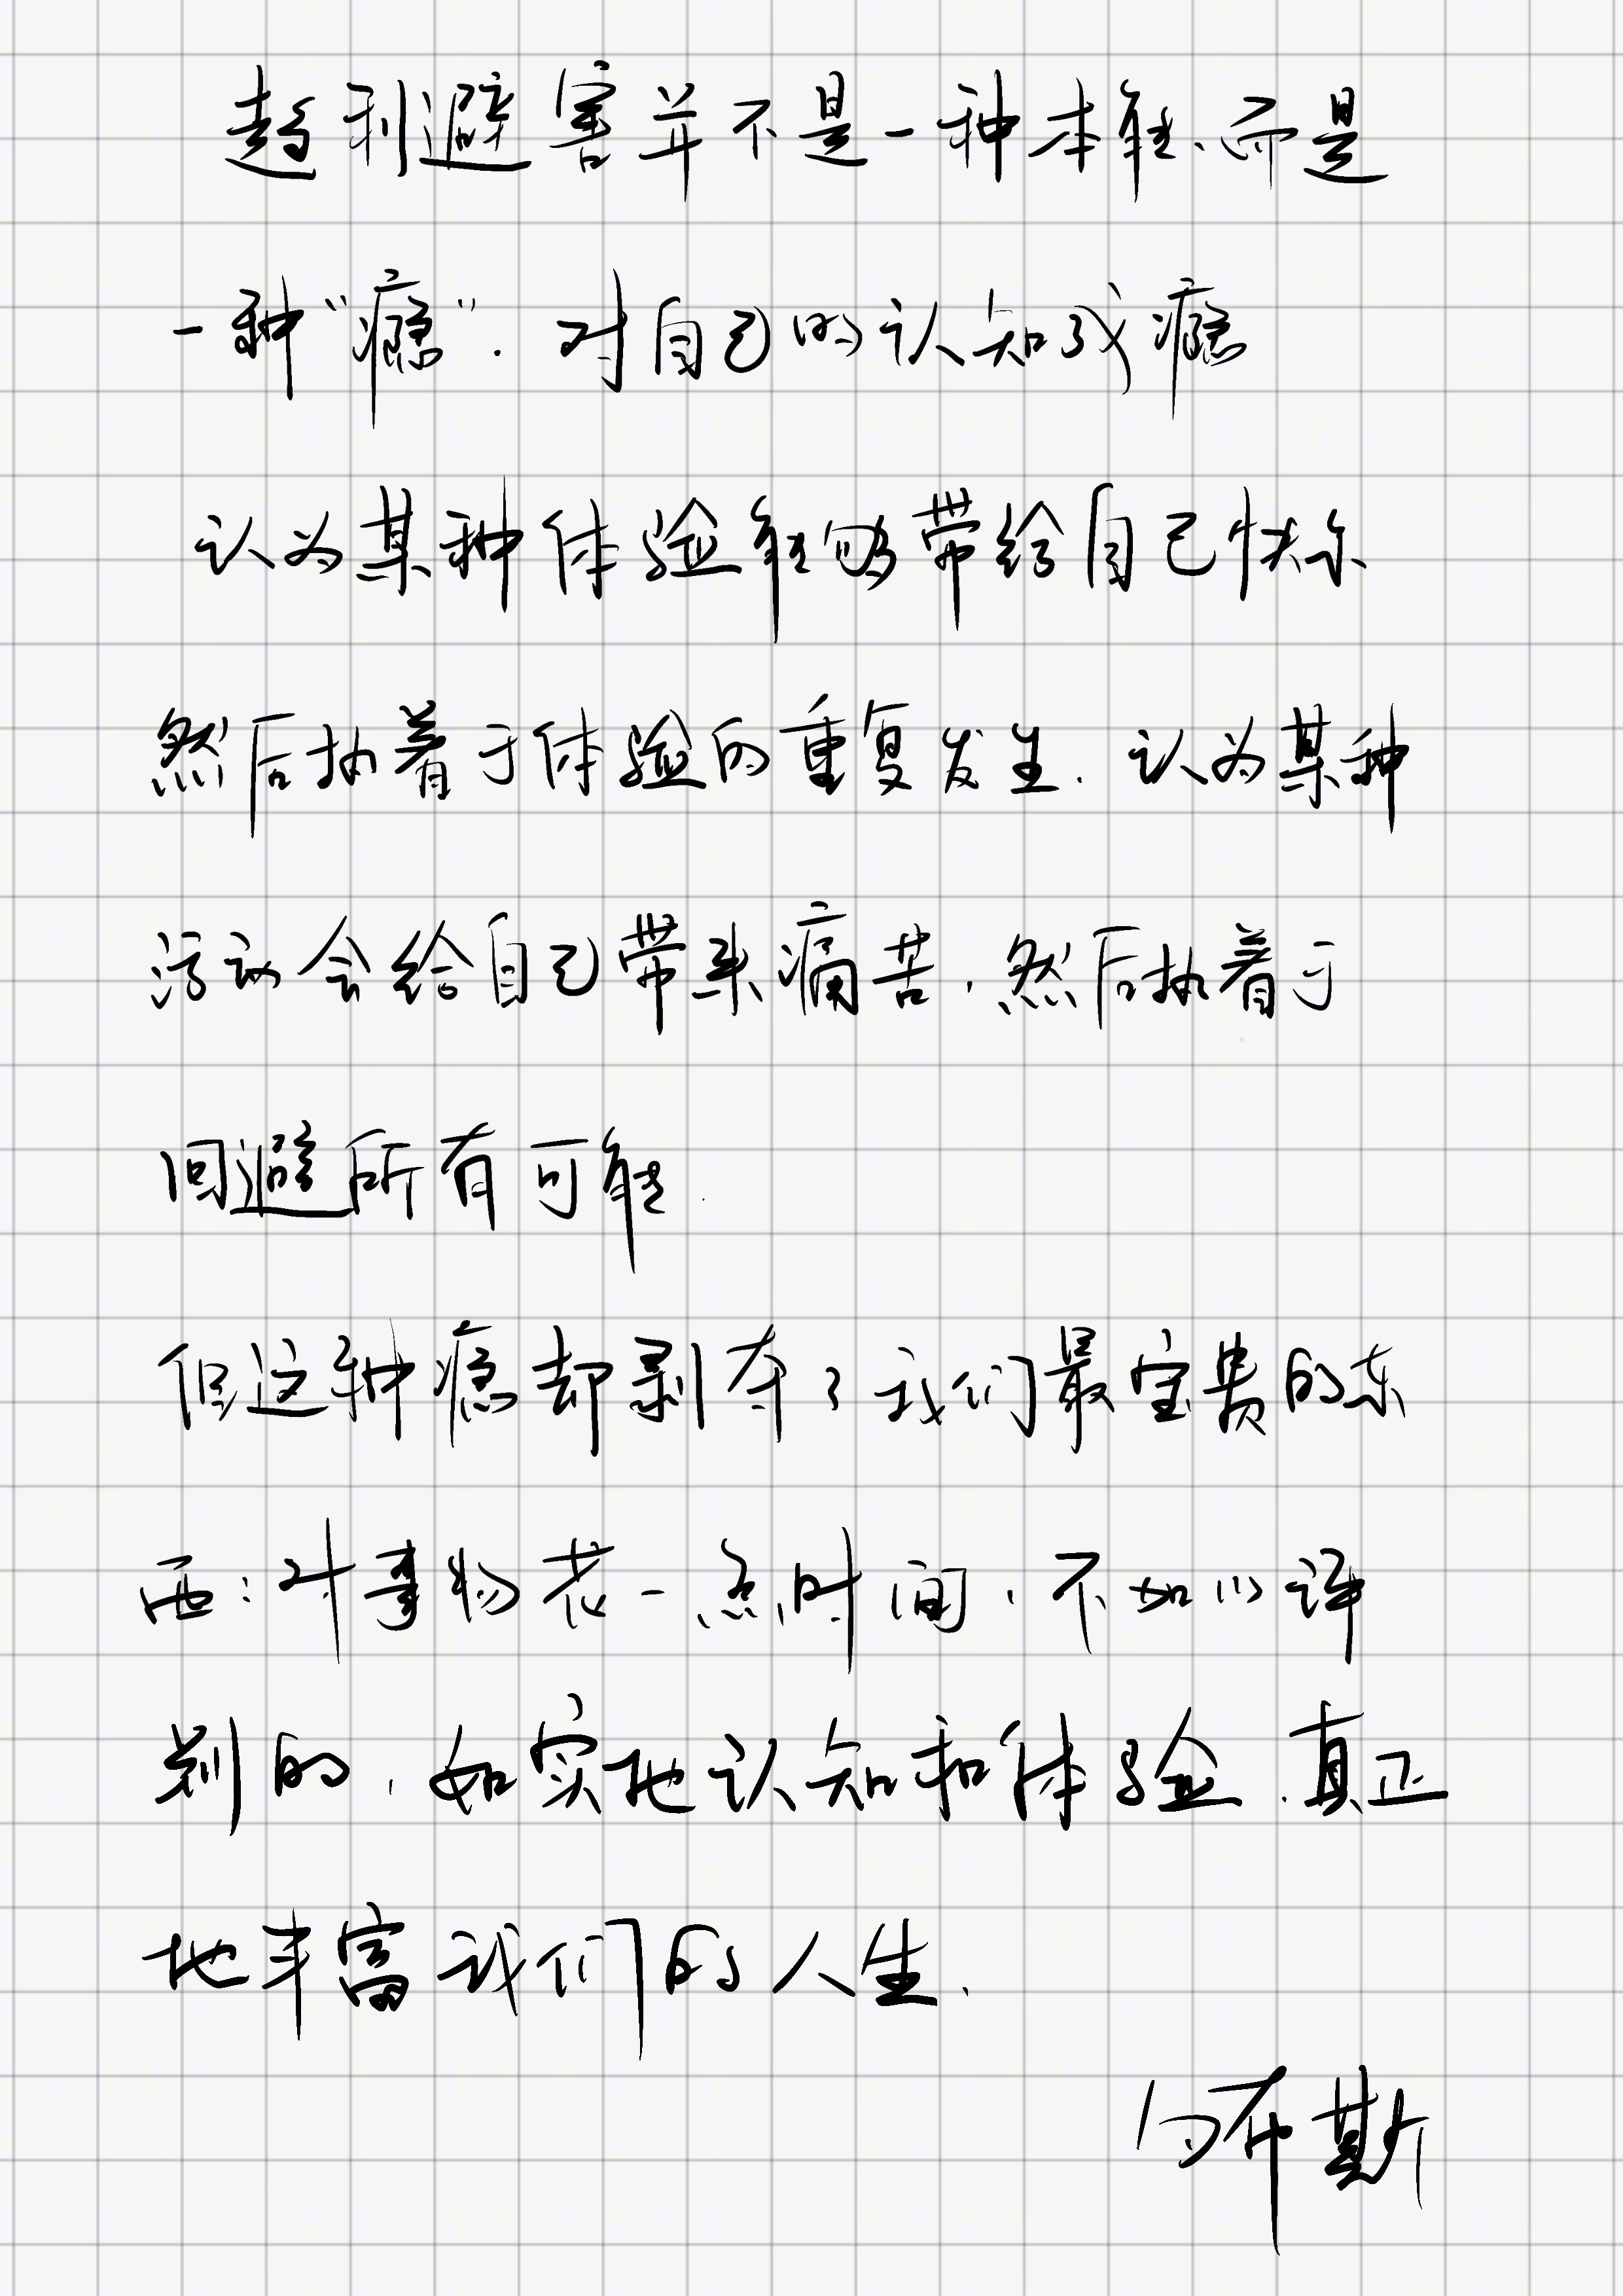 趋利避害并不是一种本能、而是
一种“瘾”. 对自己的认知成瘾
认为某种体验能够带给自己快乐
然后执着于体验的重复发生. 认为某种
活动会给自己带来痛苦, 然后执着于
回避所有可能.
但这种瘾却剥夺了我们最宝贵的东
西: 对事物花一点时间, 不加以评
判的, 如实地认知和体验. 真正
地丰富我们的人生.
布斯